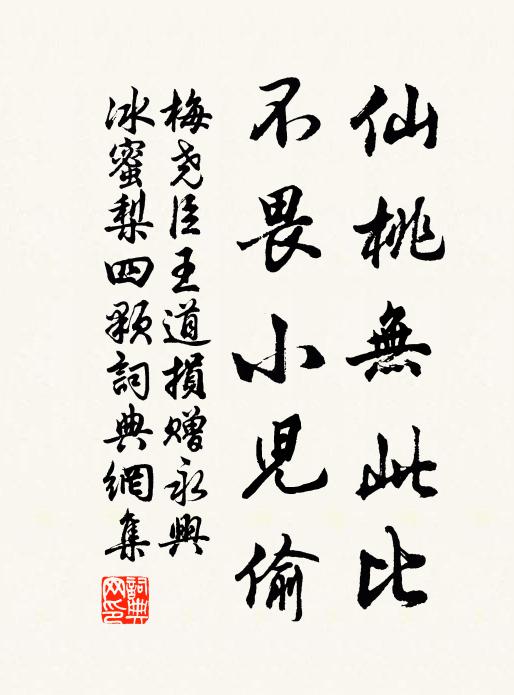 仙桃無此比
不畏小児偷
梅堯臣王道損赠永興
冰蜜梨四顆詞典網集
詞典
网印